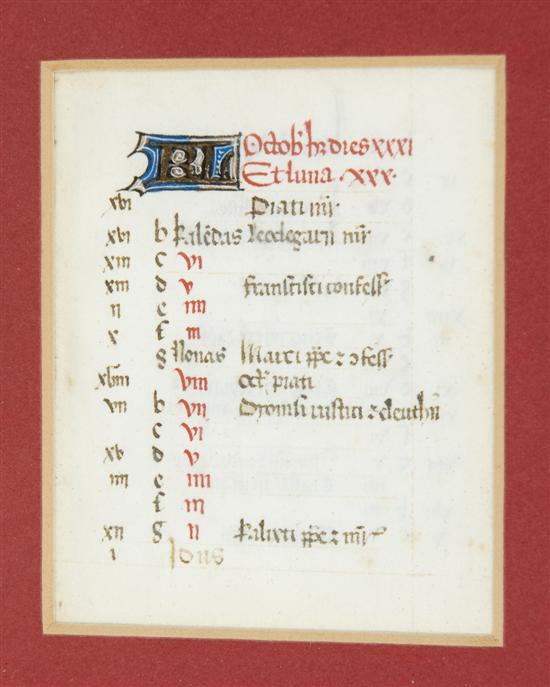 KL Octob' h~ dies xxxi
Et luna . xxx .
xvi Piati mr
xvi b kalendas leodegarii mr
xiii c vi
xiii d v franscisci confess
ii e iiii
x f iii
g Nonas Marci pp e z ofess
xviii viii oct piati
vii b vii Dyonisi rustici z eleuth
c vi
xv d v
iiii e iiii
f iii
xii g ii kalixti pp e z mr
i Idus